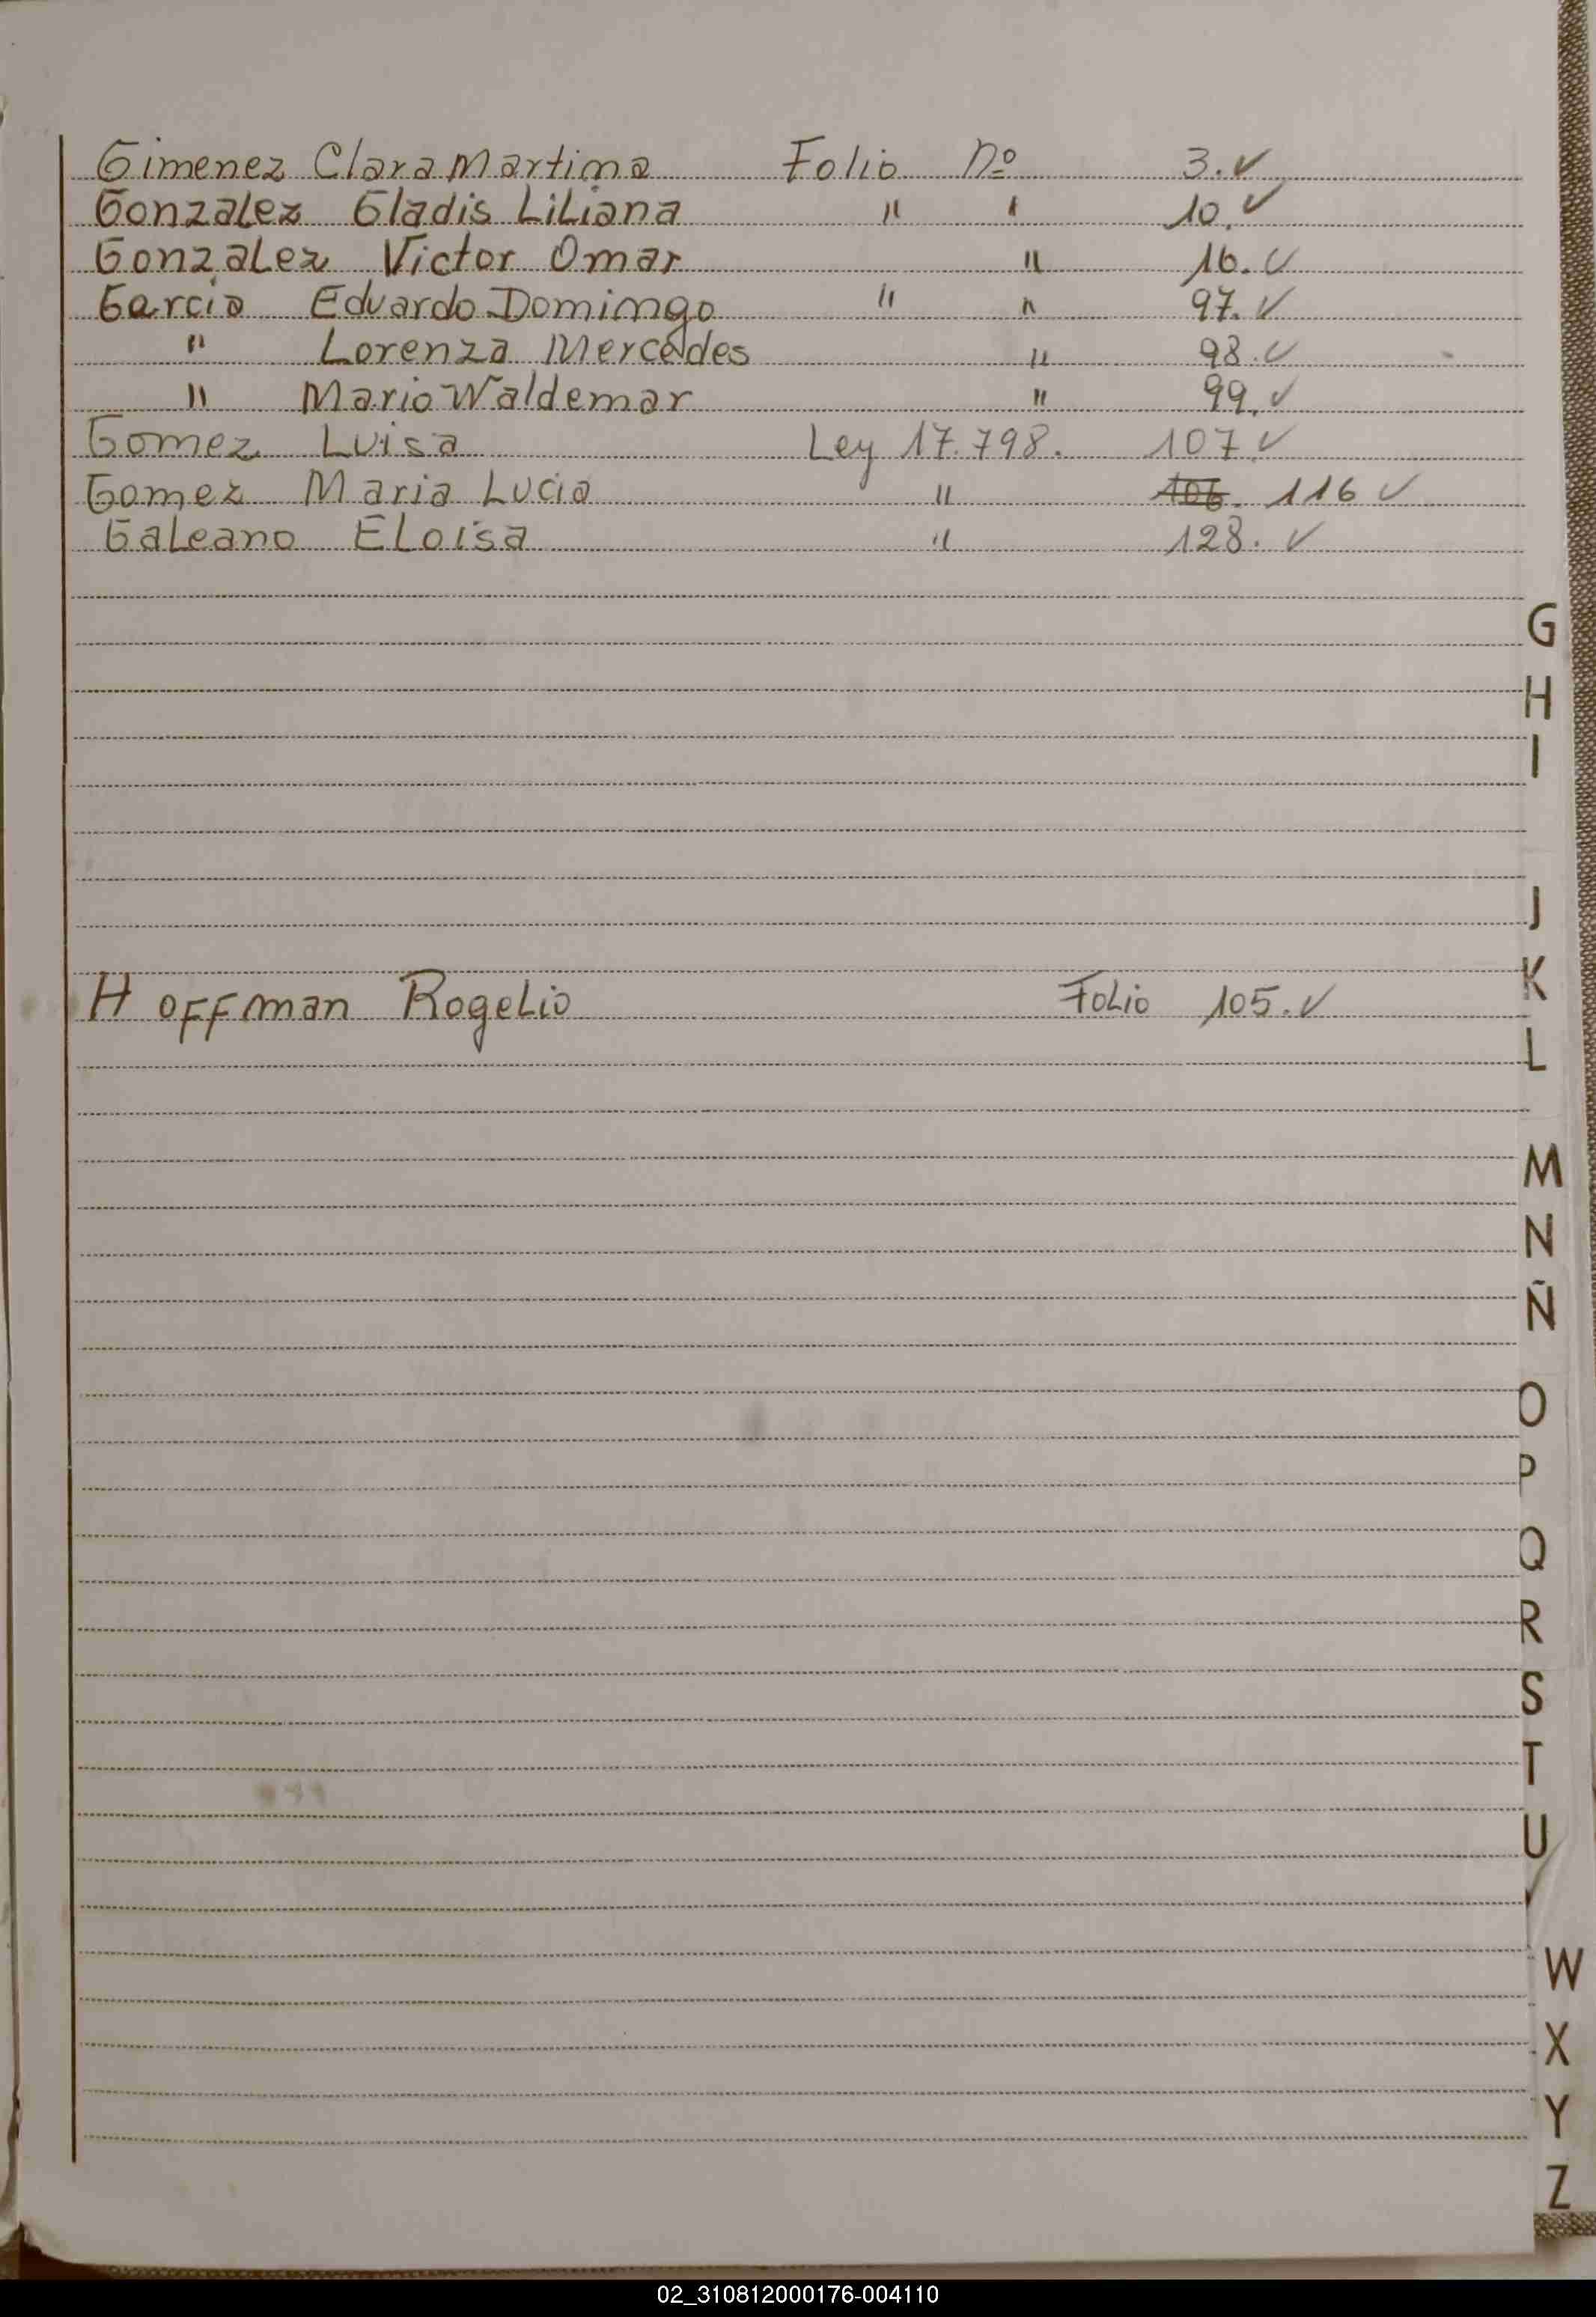 Gimenez Clara Martina Folio Nº 3. ✓
Gonzalez Gladis Liliana " ' 10. ✓
Gonzalez Victor Omar " 16. ✓
Garcia Eduardo Domingo " " 97. ✓
" Lorenza Mercedes " 98. ✓
" Mario Waldemar " 99. ✓
Gomez Luisa Ley 17.798. 107 ✓
Gomez Maria Lucia " 106. 116 ✓
Galeano Eloisa " 128. ✓
Hoffman Rogelio Folio 105. ✓
G
H
I
J
K
L
M
N
Ñ
O
P
Q
R
S
T
U
W
X
Y
Z
02_310812000176-004110